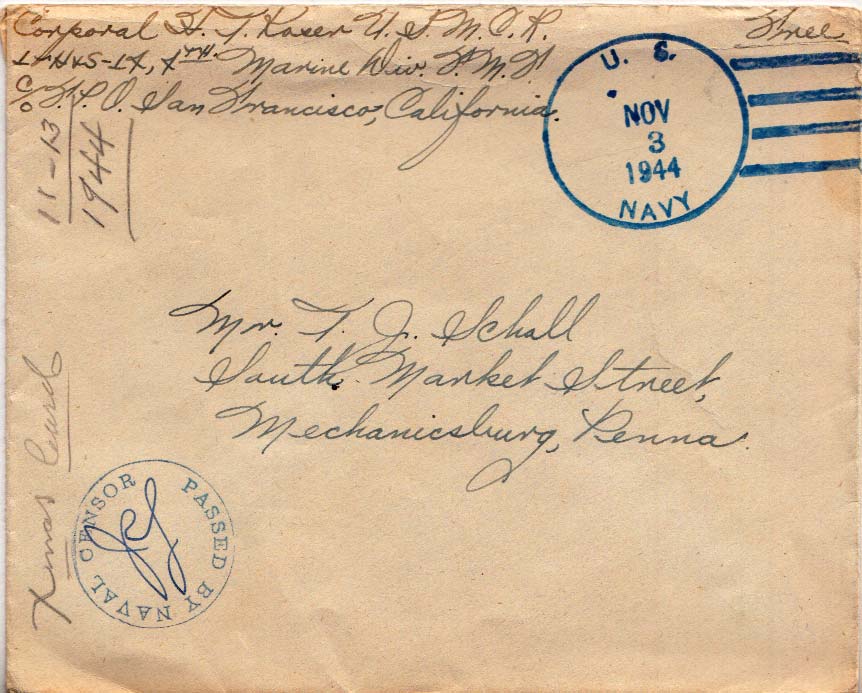 Corporal H. T. Koser U. S. M. C. R.
Free
H&S-1-1, 1st Marine Div. F. M. F.
c/o F. P. O. San Francisco, California.
11-13
1944
U. S.
NOV
3
1944
NAVY
Mr. T. J. Schall
South Market Street,
Mechanicsburg, Penna.
Xmas Card
PASSED BY NAVAL CENSOR